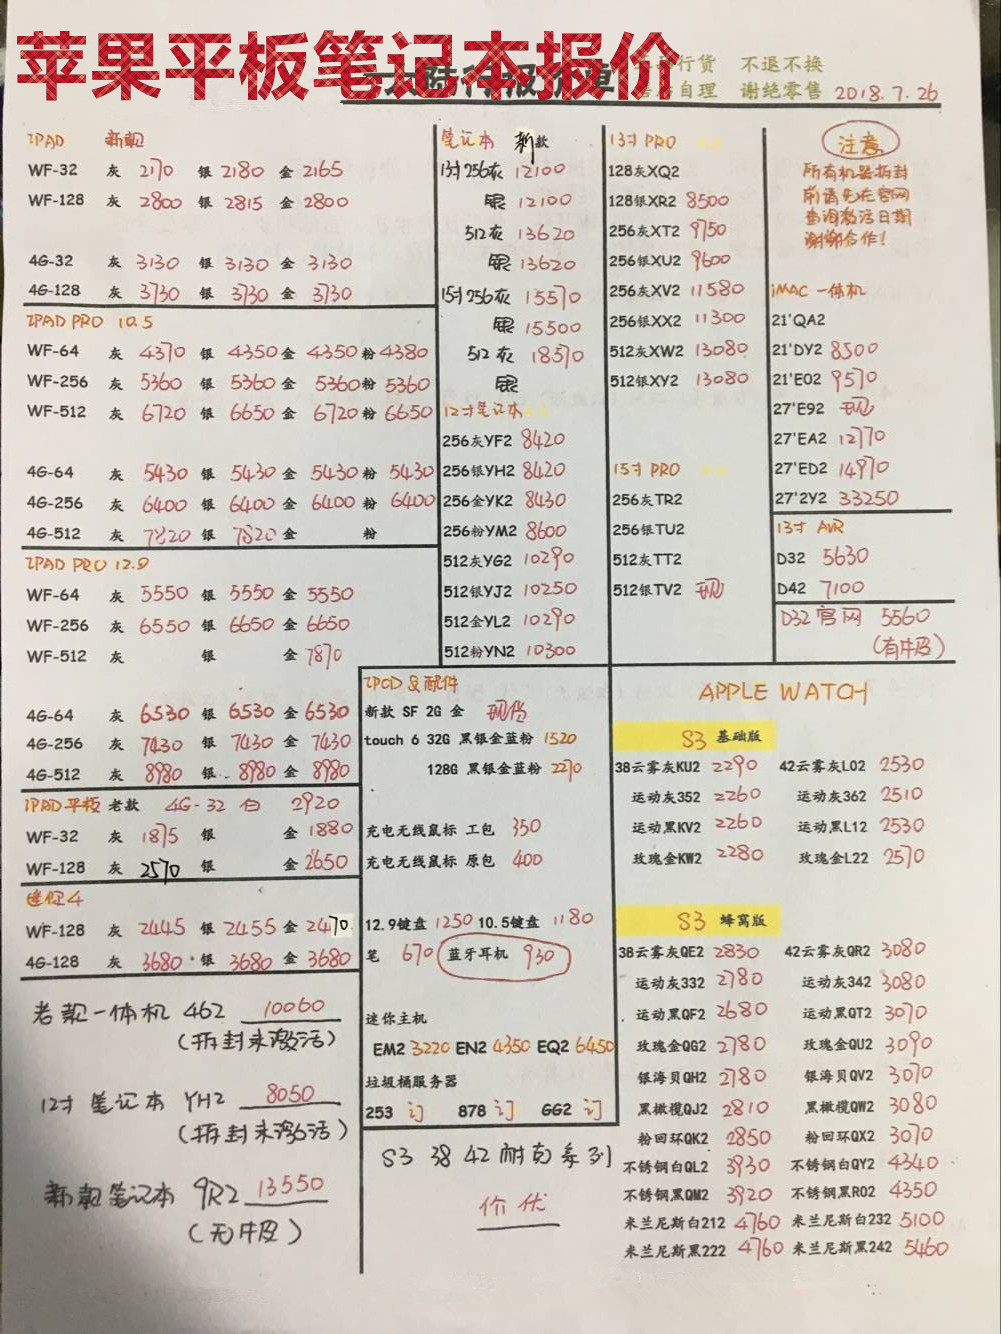 苹果平板笔记本报价
大陆行报价单
行货 不退不换
自理 谢绝零售 2018.7.26
IPAD 新款
WF-32 灰 2170 银 2180 金 2165
WF-128 灰 2800 银 2815 金 2800
4G-32 灰 3130 银 3130 金 3130
4G-128 灰 3730 银 3730 金 3730
IPAD PRO 10.5
WF-64 灰 4370 银 4350 金 4350 粉 4380
WF-256 灰 5360 银 5360 金 5360 粉 5360
WF-512 灰 6720 银 6650 金 6720 粉 6650
4G-64 灰 5430 银 5430 金 5430 粉 5430
4G-256 灰 6400 银 6400 金 6400 粉 6400
4G-512 灰 7820 银 7820 金 粉
IPAD PRO 12.9
WF-64 灰 5550 银 5550 金 5550
WF-256 灰 6550 银 6650 金 6650
WF-512 灰 银 金 7870
4G-64 灰 6530 银 6530 金 6530
4G-256 灰 7430 银 7430 金 7430
4G-512 灰 8980 银 8980 金 8980
IPAD平板 老款 4G-32 白 2920
WF-32 灰 1875 银 金 1880
WF-128 灰 2570 银 金 2650
迷你4
WF-128 灰 2445 银 2455 金 2470
4G-128 灰 3680 银 3680 金 3680
老款一体机 462 10060
(拆封未激活)
12寸 笔记本 YH2 8050
(拆封未激活)
新款笔记本 9R2 13550
(无牛皮)
笔记本 新款
13寸 256灰 12100
银 12100
512灰 13620
银 13620
15寸 256灰 15570
银 15500
512灰 18570
银
12寸笔记本
256灰YF2 8420
256银YH2 8420
256金YK2 8430
256粉YM2 8600
512灰YG2 10290
512银YJ2 10250
512金YL2 10290
512粉YN2 10300
13寸 PRO
128灰XQ2
128银XR2 8500
256灰XT2 9750
256银XU2 9600
256灰XV2 11580
256银XX2 11300
512灰XW2 13080
512银XY2 13080
15寸 PRO
256灰TR2
256银TU2
512灰TT2
512银TV2 现
注意
所有机器拆封
前请先在官网
查询激活日期
谢谢合作!
iMAC 一体机
21'QA2
21'DY2 8500
21'E02 9570
27'E92 现
27'EA2 12770
27'ED2 14970
27'2Y2 33250
13寸 AIR
D32 5630
D42 7100
D32 官网 5560
(有牛皮)
IPOD 及配件
新款 SF 2G 金 现货
touch 6 32G 黑银金蓝粉 1520
128G 黑银金蓝粉 2270
充电无线鼠标 工包 350
充电无线鼠标 原包 400
12.9键盘 1250 10.5键盘 1180
笔 670 蓝牙耳机 930
迷你主机
EM2 3220 EN2 4350 EQ2 6450
垃圾桶服务器
253 订 878 订 GG2 订
S3 38 42 耐克系列
价优
APPLE WATCH
S3 基础版
38云雾灰KU2 2290 42云雾灰L02 2530
运动灰352 2260 运动灰362 2510
运动黑KV2 2260 运动黑L12 2530
玫瑰金KW2 2280 玫瑰金L22 2570
S3 蜂窝版
38云雾灰QE2 2830 42云雾灰QR2 3080
运动灰332 2780 运动灰342 3080
运动黑QF2 2680 运动黑QT2 3070
玫瑰金QG2 2780 玫瑰金QU2 3090
银海贝QH2 2780 银海贝QV2 3070
黑橄榄QJ2 2810 黑橄榄QW2 3080
粉回环QK2 2850 粉回环QX2 3070
不锈钢白QL2 3930 不锈钢白QY2 4340
不锈钢黑QM2 3920 不锈钢黑R02 4350
米兰尼斯白212 4760 米兰尼斯白232 5100
米兰尼斯黑222 4760 米兰尼斯黑242 5460